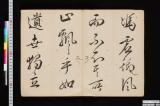 馮虛御風
而不知其所
止飄々乎如
遺世獨立